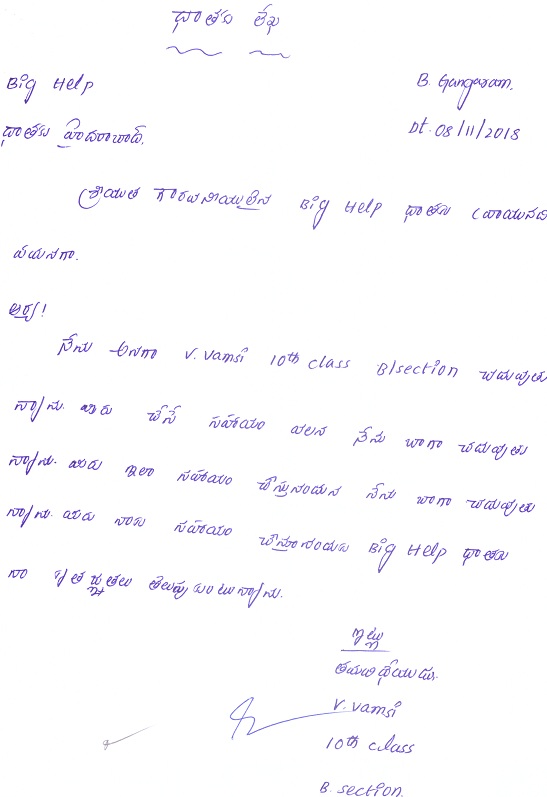 ధాతకు లేఖ
Big Help
B. Gangaram.
ధాతకు హైదరాబాద్.
Dt. 08/11/2018
శ్రీయుత గౌరవనీయులైన Big Help ధాతకు వ్రాయునది
ఏమనగా.
ఆర్య!
నేను అనగా V. Vamsi 10th class B/section చదువుతు
న్నాను. మీరు చేసే సహాయం వలన నేను బాగా చదువుతు
న్నాను. మీరు ఇలా సహాయం చేస్తున్నందున నేను బాగా చదువుతు
న్నాను. మీరు నాకు సహాయం చేస్తూన్నందుకు Big Help ధాతకు
నా కృతజ్ఞతలు తెలుపుకుంటున్నాను.
ఇట్లు
తమ విధేయుడు.
V. Vamsi
10th class
B. section.